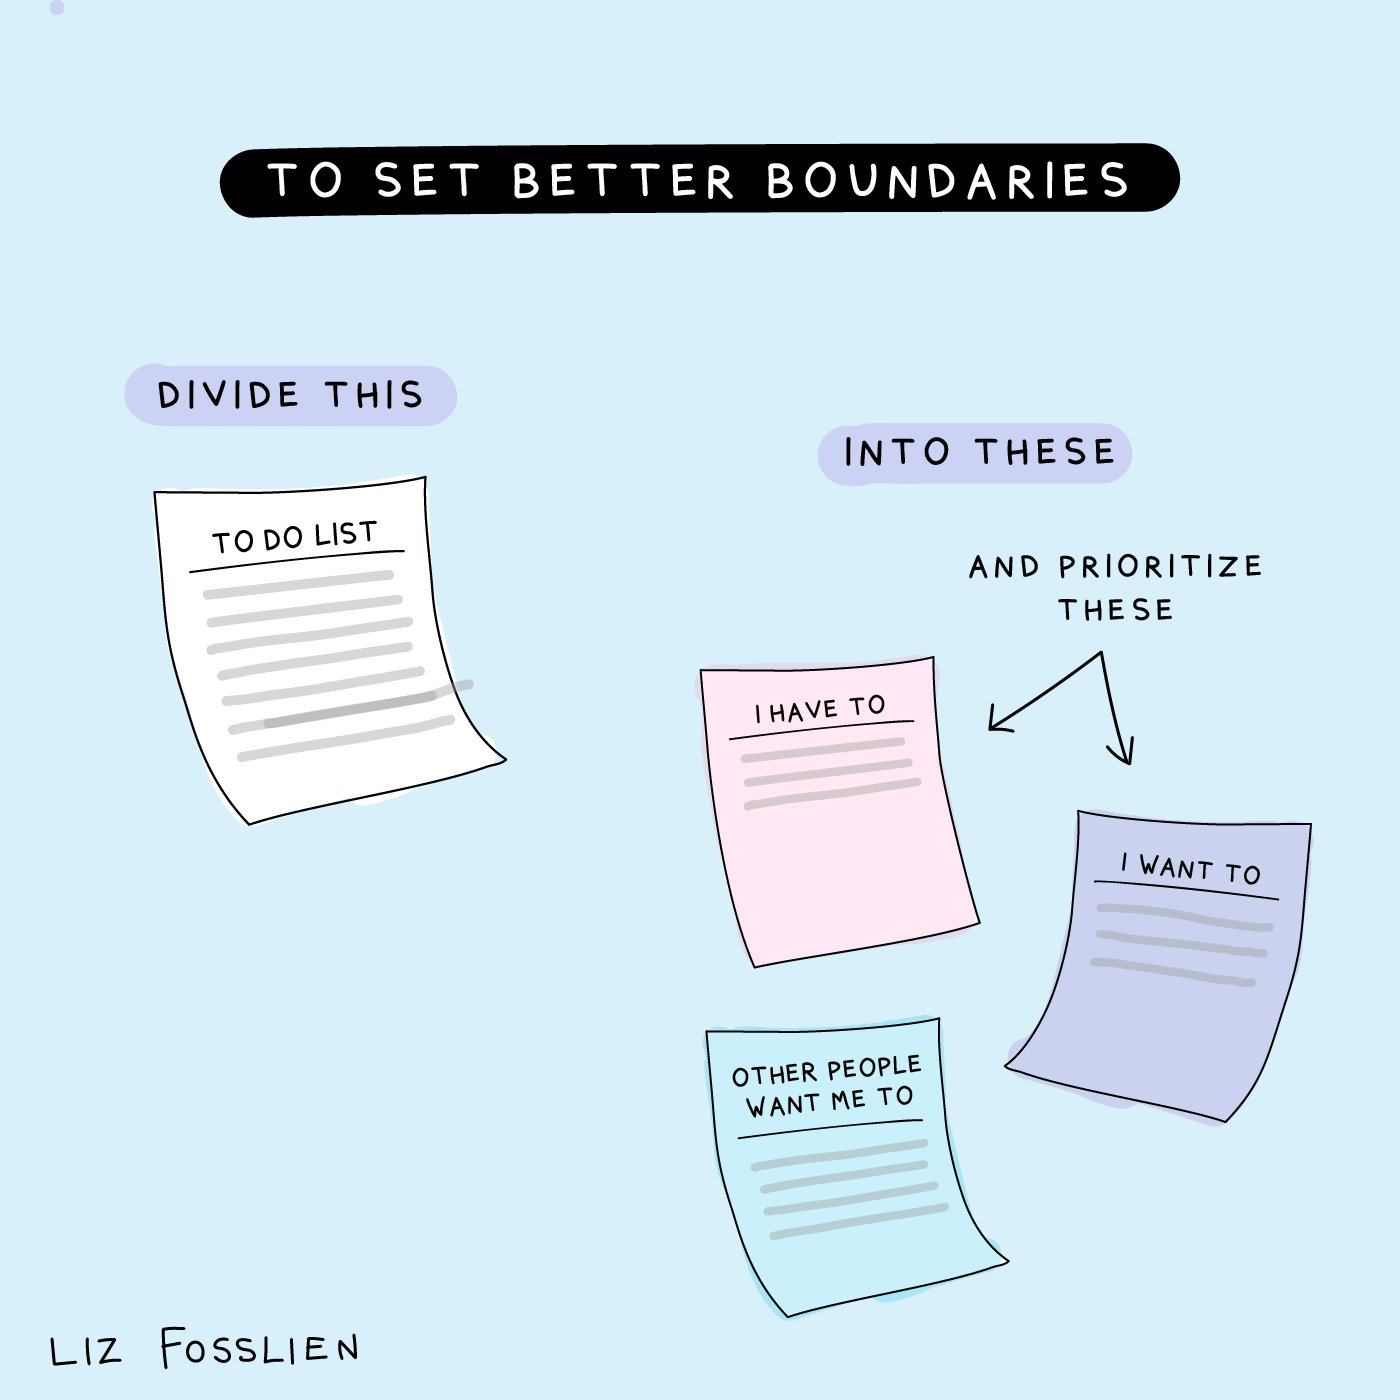 TO SET BETTER BOUNDARIES
DIVIDE THIS
TO DO LIST
INTO THESE
AND PRIORITIZE
THESE
I HAVE TO
I WANT TO
OTHER PEOPLE
WANT ME TO
LIZ FOSSLIEN